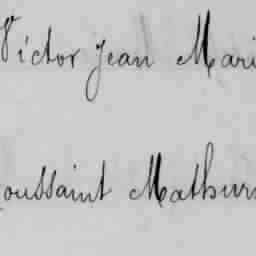 Victor Jean Mari
oussaint Mathur